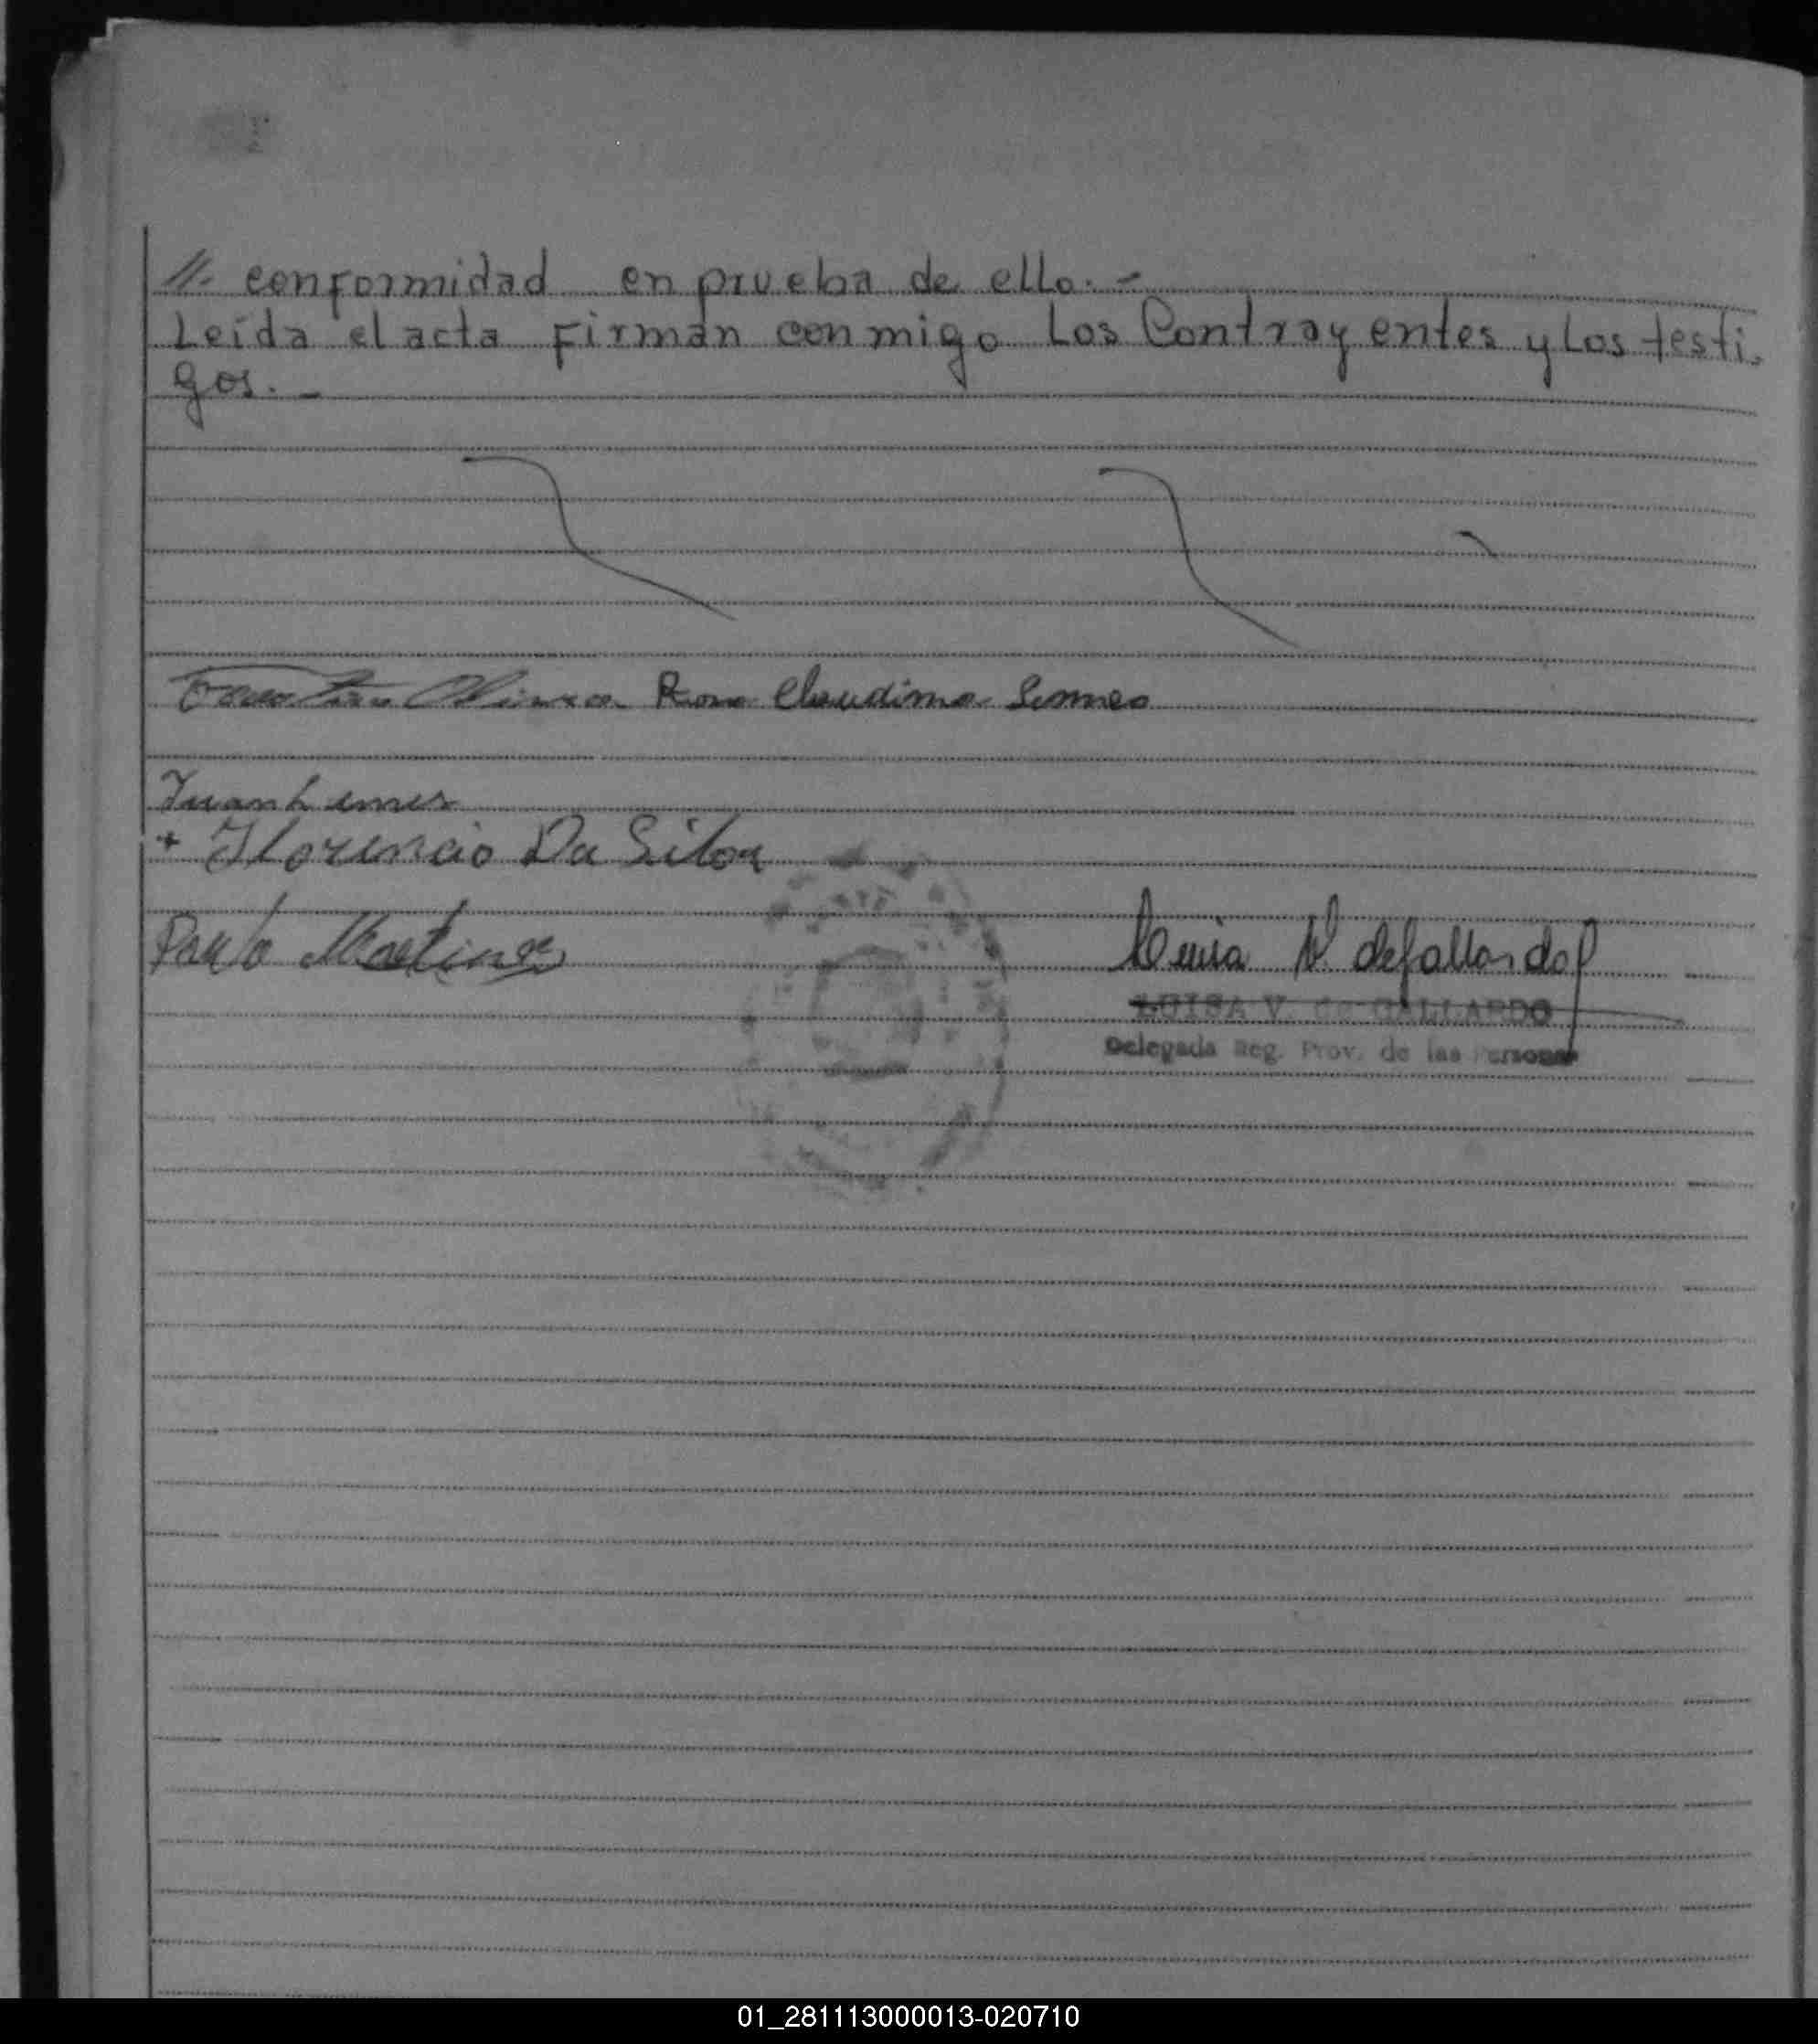 //- conformidad en prueba de ello.-
Leída el acta firman conmigo Los Contrayentes y Los testi-
gos.-
Rosa Claudima Lemes
Juan Lemes
+ Florencio Da Silva
Martinez
Luisa V. de Gallardo
LUISA V. de GALLARDO
Delegada Reg. Prov. de las Personas
01_281113000013-020710